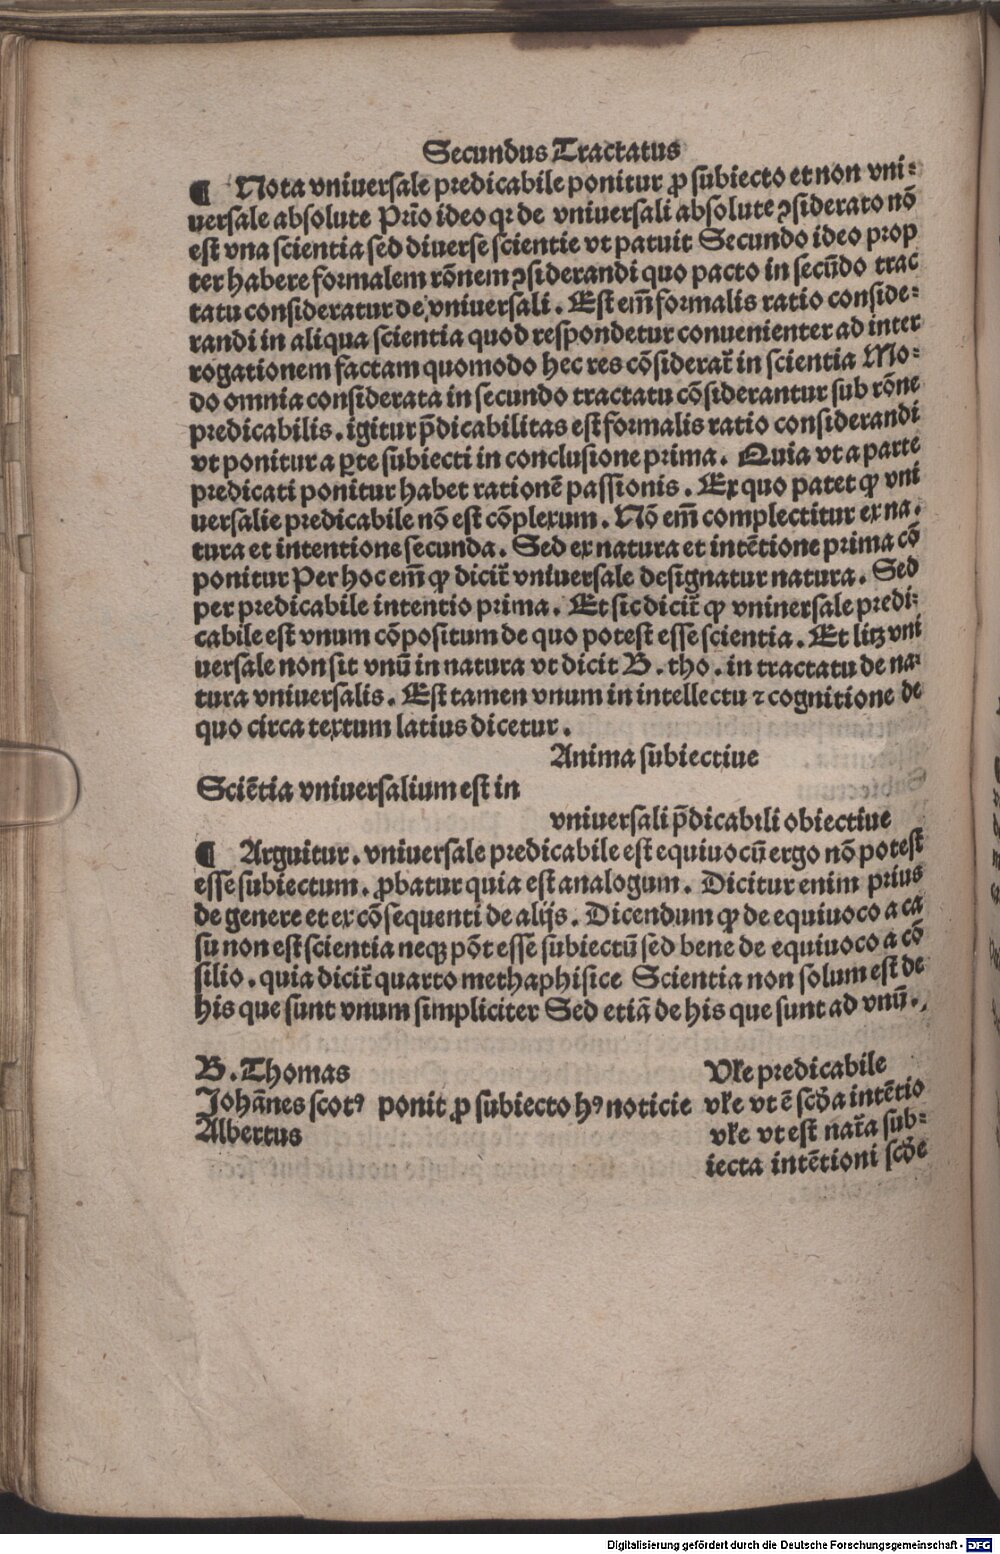 Secundus Tractatus
¶ Nota vniuersale predicabile ponitur ꝓ subiecto et non vni⸗
uersale absolute Prīo ideo qꝛ de vniuersali absolute ꝯsiderato nō
est vna scientia sed diuerse scientie vt patuit Secundo ideo prop
ter habere formalem rōnem ꝯsiderandi quo pacto in secūdo trac
tatu consideratur de vniuersali. Est em̄ formalis ratio conside⸗
randi in aliqua scientia quod respondetur conuenienter ad inter
rogationem factam quomodo hec res cōsiderat᷑ in scientia Mo⸗
do omnia considerata in secundo tractatu cōsiderantur sub rōne
predicabilis. igitur p̄dicabilitas est formalis ratio considerandi
vt ponitur a ꝑte subiecti in conclusione prima. Quia vt a parte
predicati ponitur habet rationē passionis. Ex quo patet ꝙ vni
uersalie predicabile nō est cōplexum. Nō em̄ complectitur ex na⸗
tura et intentione secunda. Sed ex natura et intētione prima cō
ponitur Per hoc em̄ ꝙ dicit᷑ vniuersale designatur natura. Sed
per predicabile intentio prima. Et sic dicit᷑ ꝙ vninersale predi⸗
cabile est vnum cōpositum de quo potest esse scientia. Et litꝫ vni
uersale non sit vnū in natura vt dicit B. tho. in tractatu de na⸗
tura vniuersalis. Est tamen vnum in intellectu ⁊ cognitione de
quo circa textum latius dicetur.
Anima subiectiue
Sciētia vniuersalium est in
vniuersali p̄dicabili obiectiue
¶ Arguitur. vniuersale predicabile est equiuocū ergo nō potest
esse subiectum. ꝓbatur quia est analogum. Dicitur enim prius
de genere et ex cōsequenti de alijs. Dicendum ꝙ de equiuoco a ca
su non est scientia neqꝫ pōt esse subiectū sed bene de equiuoco a cō
silio. quia dicit᷑ quarto methaphisice Scientia non solum est de
his que sunt vnum simpliciter Sed etiā de his que sunt ad vnū.
B. Thomas Vľe predicabile
Johānes scotꝰ ponit ꝓ subiecto hꝰ noticie vľe vt ē scďa intētio
Albertus vľe vt est nat᷑a sub⸗
iecta intētioni scďe
Digitalisierung gefördert durch die Deutsche Forschungsgemeinschaft - DFG